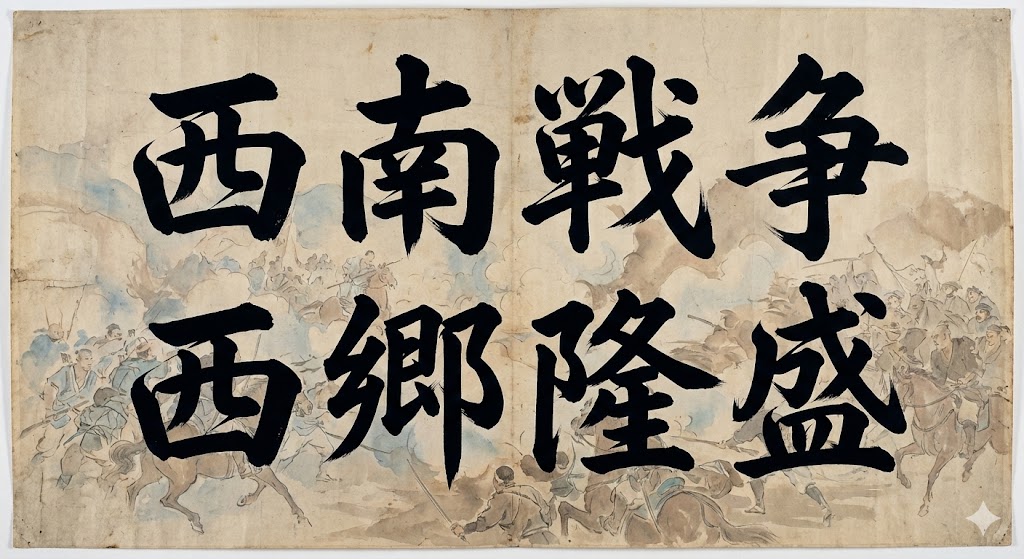 西南戦争
西郷隆盛